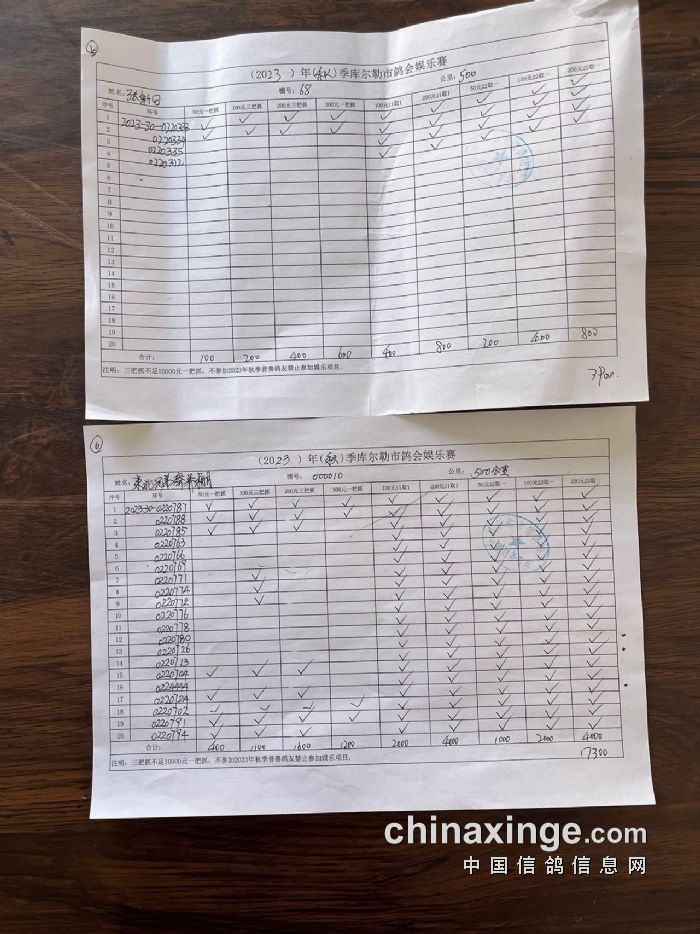 6
(2023)年(秋)季库尔勒市鸽会娱乐赛
姓名: 棚号: 68 公里: 500
序号 环号 50元一把抓 100元三把抓 200元三把抓 300元一把抓 100元11取1 200元11取1 50元22取一 100元22取一 200元22取一
1 2023-30-0220333 ✓ ✓ ✓ ✓ ✓ ✓ ✓ ✓ ✓
2 0220334 ✓ ✓ ✓ ✓ ✓ ✓ ✓ ✓ ✓
3 0220335
4
5
6
7
8
9
10
11
12
13
14
15
16
17
18
19
20
合计: 100 200 400 600 400 800 200 400 800
注明: 三把抓不足10000元一把抓, 不参加2023年秋季普赛鸽友禁止参加娱乐项目.
3900
6
(2023)年(秋)季库尔勒市鸽会娱乐赛
姓名: 棚号: 000010 公里: 500
序号 环号 50元一把抓 100元三把抓 200元三把抓 300元一把抓 100元11取1 200元11取1 50元22取一 100元22取一 200元22取一
1 2023-30-0220787
2 0220788
3 0220785
4 0220763
5 0220766
6 0220769
7 0220771
8 0220774
9 0220772
10 0220776
11 0220778
12 0220780
13 0220726
14 0220713
15 0220704
16
17 0220724
18 0220702
19 0220791
20 0220794
合计: 400 1100 1600 1200 2000 4000 1000 2000 4000
注明: 三把抓不足10000元一把抓, 不参加2023年秋季普赛鸽友禁止参加娱乐项目.
17300
chinaxinge.com
中国信鸽信息网